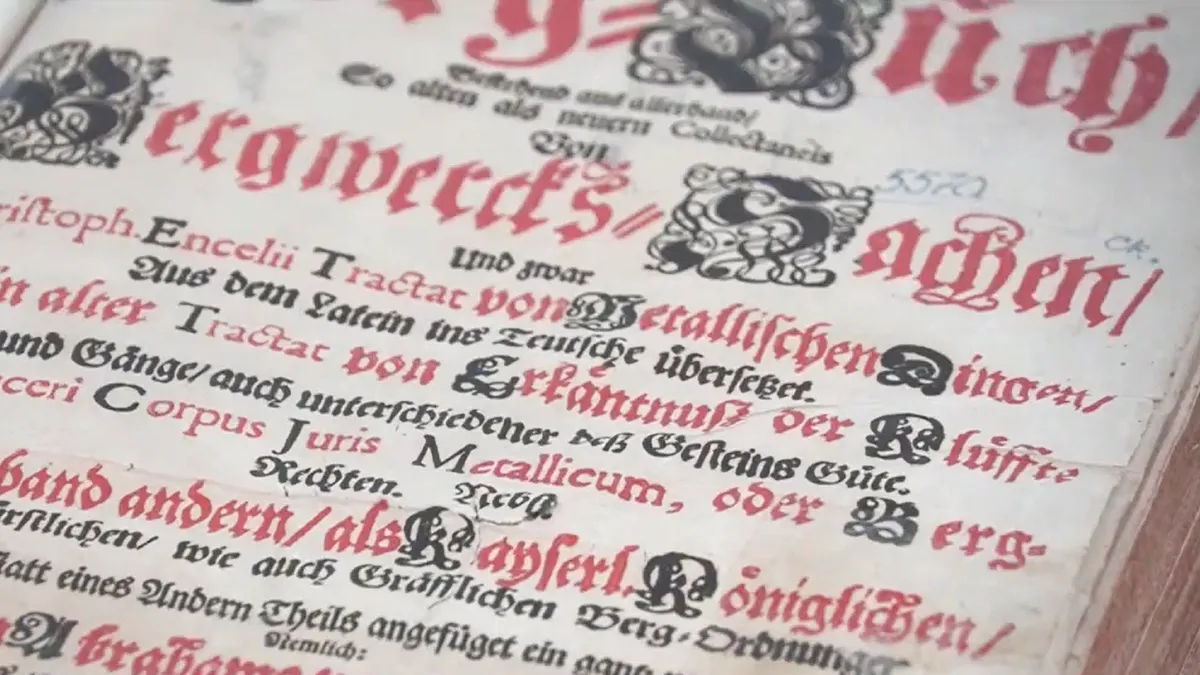 rg=Büch/
Bestehend aus allerhand/
So alten als neuern Collectaneis
Von
Bergwercks// Sachen/
5572
ck.
und zwar
riſtoph. Encelii Tractat von Metalliſchen Dingen/
Aus dem Latein ins Teutſche überſetzet.
in alter Tractat von Erkäntnuß der Klüffte
und Gänge/ auch unterſchiedener deß Geſteins Güte.
ceri Corpus Juris Metallicum, oder Berg-
Rechten. Nebst
band andern/ als Kayſerl. Königlichen/
rſtlichen/ wie auch Gräfflichen Berg-Ordnungen
ſtatt eines Andern Theils angefüget ein gantz
Nemlich:
Abraham